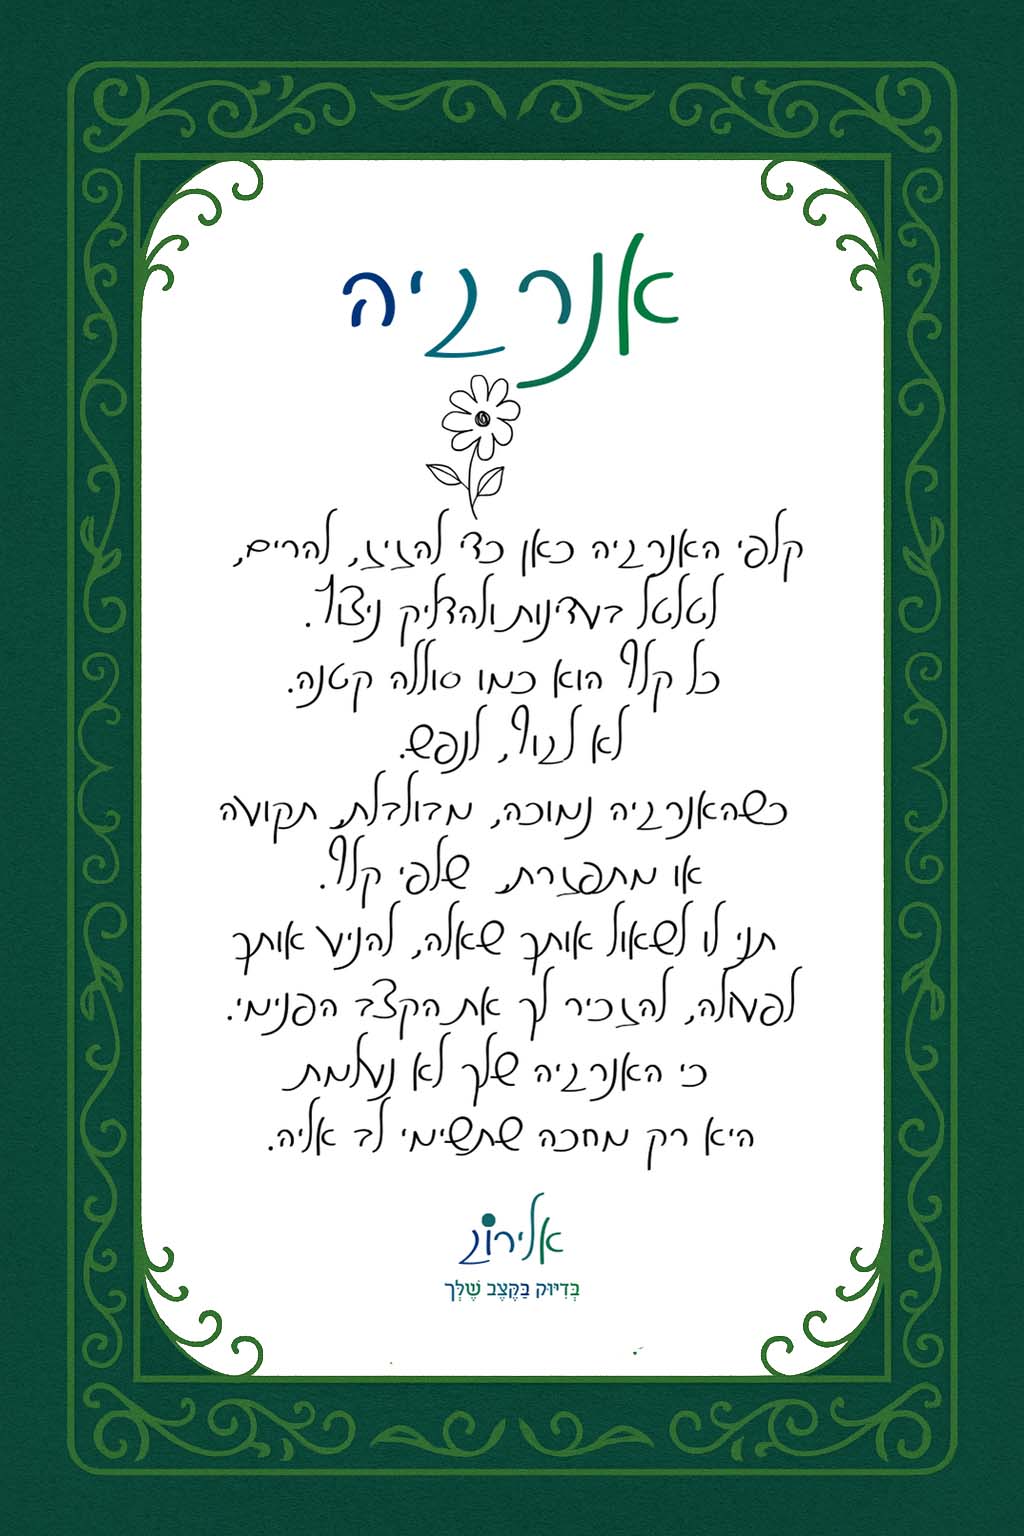 אנרגיה
קלפי האנרגיה כאן כדי להזיז, להרים,
לטלטל בעדינות ולהדליק ניצוץ.
כל קלף הוא כמו סוללה קטנה.
לא לגוף, לנפש.
כשהאנרגיה נמוכה, מבולבלת, תקועה
או מתפזרת, שלפי קלף.
תני לו לשאול אותך שאלה, להניע אותך
לפעולה, להזכיר לך את הקצב הפנימי.
כי האנרגיה שלך לא נעלמת
היא רק מחכה שתשימי לב אליה.
אלירוֹג
בְּדִיּוּק בַּקֶּצֶב שֶׁלְּך